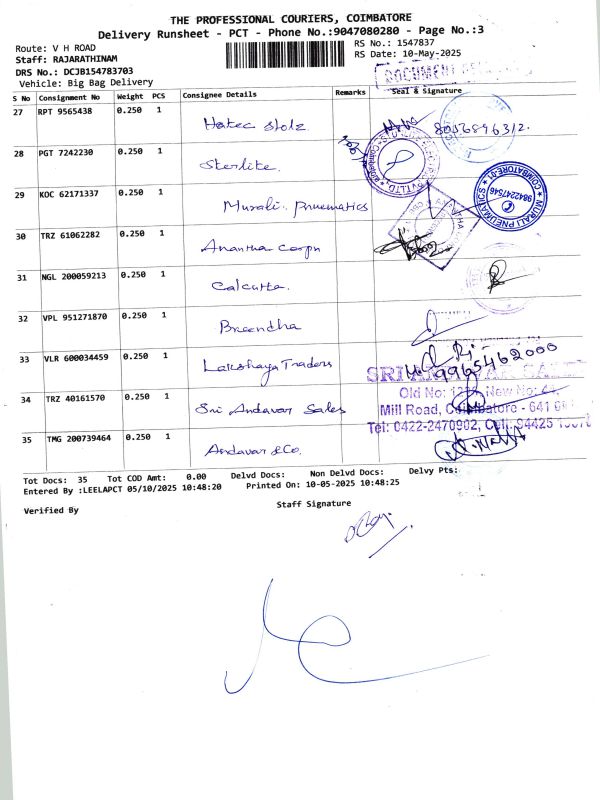 THE PROFESSIONAL COURIERS, COIMBATORE
Delivery Runsheet - PCT - Phone No.:9047080280 - Page No.:3
Route: V H ROAD
RS No.: 1547837
Staff: RAJARATHINAM
RS Date: 10-May-2025
DRS No.: DCJB154783703
Vehicle: Big Bag Delivery
DOCUMENT
S No Consignment No Weight PCS Consignee Details Remarks Seal & Signature
27 RPT 9565438 0.250 1 Hatec Stolz 8056896312.
28 PGT 7242230 0.250 1 Sterlite.
29 KOC 62171337 0.250 1 Murali. Pnuematics
MURALI PNEUMATICS COIMBATORE 9842247546
30 TRZ 61062282 0.250 1 Anantha Corpn
31 NGL 200059213 0.250 1 Calcutta.
32 VPL 951271870 0.250 1 Breendha
33 VLR 600034459 0.250 1 Lakshaya Traders 9965462000
34 TRZ 40161570 0.250 1 Sri Andavar Sales
Mill Road, Coimbatore - 641 0
Tel: 0422-2470902, Cell: 94425
35 TMG 200739464 0.250 1 Andavar & Co.
Tot Docs: 35 Tot COD Amt: 0.00 Delvd Docs: Non Delvd Docs: Delvy Pts:
Entered By :LEELAPCT 05/10/2025 10:48:20 Printed On: 10-05-2025 10:48:25
Verified By Staff Signature